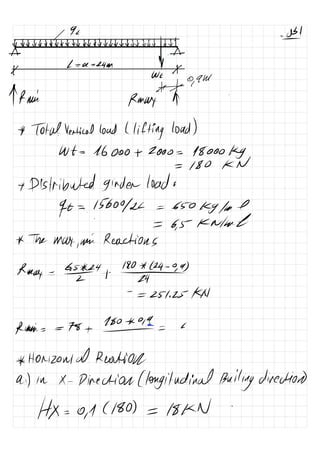 الحل -
qt
L = a = 24m
Wt
0,9m
Rmin
Rmax
* Total Vertical load (lifting load)
Wt = 16000 + 2000 = 18000 kg
= 180 KN
+ Distributed girder load.
qt = 15600/24 = 650 kg/ml
= 6,5 KN/ml
* The max, min Reactions
Rmax = 6.5*24/2 + 180*(24-0,9)/24
= 251.25 KN
Rmin = = 78 + 180*0,9 =
* Horizontal Reation
a) in X-Direction (longitudinal Builing direction)
HX = 0,1 (180) = 18KN